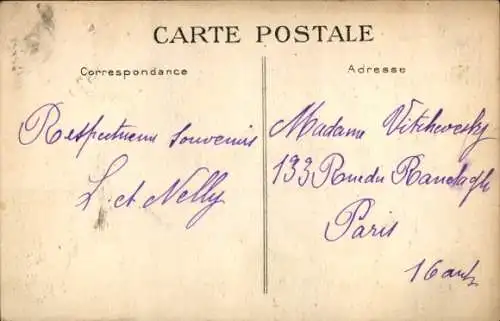 CARTE POSTALE
Correspondance
Adresse
Respectueux souvenirs
L. et Nelly
Madame Vitchevesky
133 Rue du Ranelagh
Paris
16